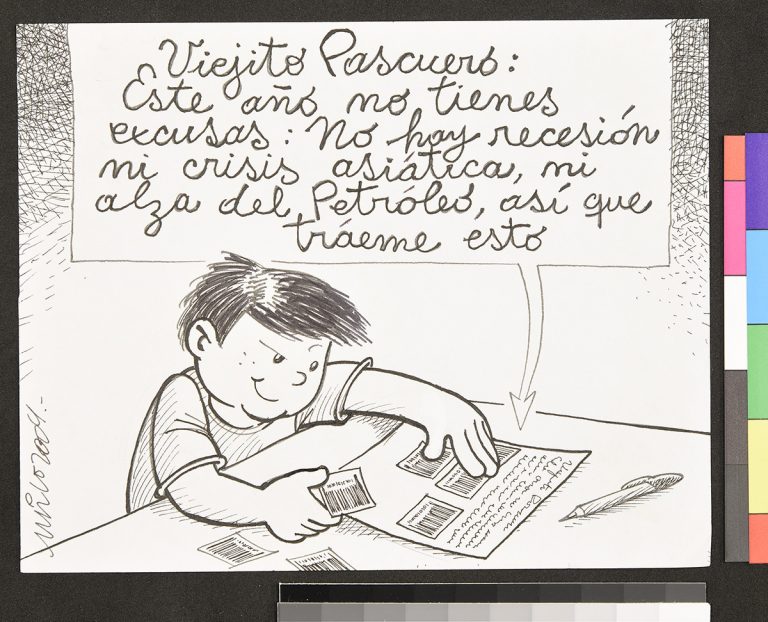 Viejito Pascuero:
Este año no tienes
excusas: No hay recesión
ni crisis asiática, ni
alza del Petróleo, así que
tráeme esto